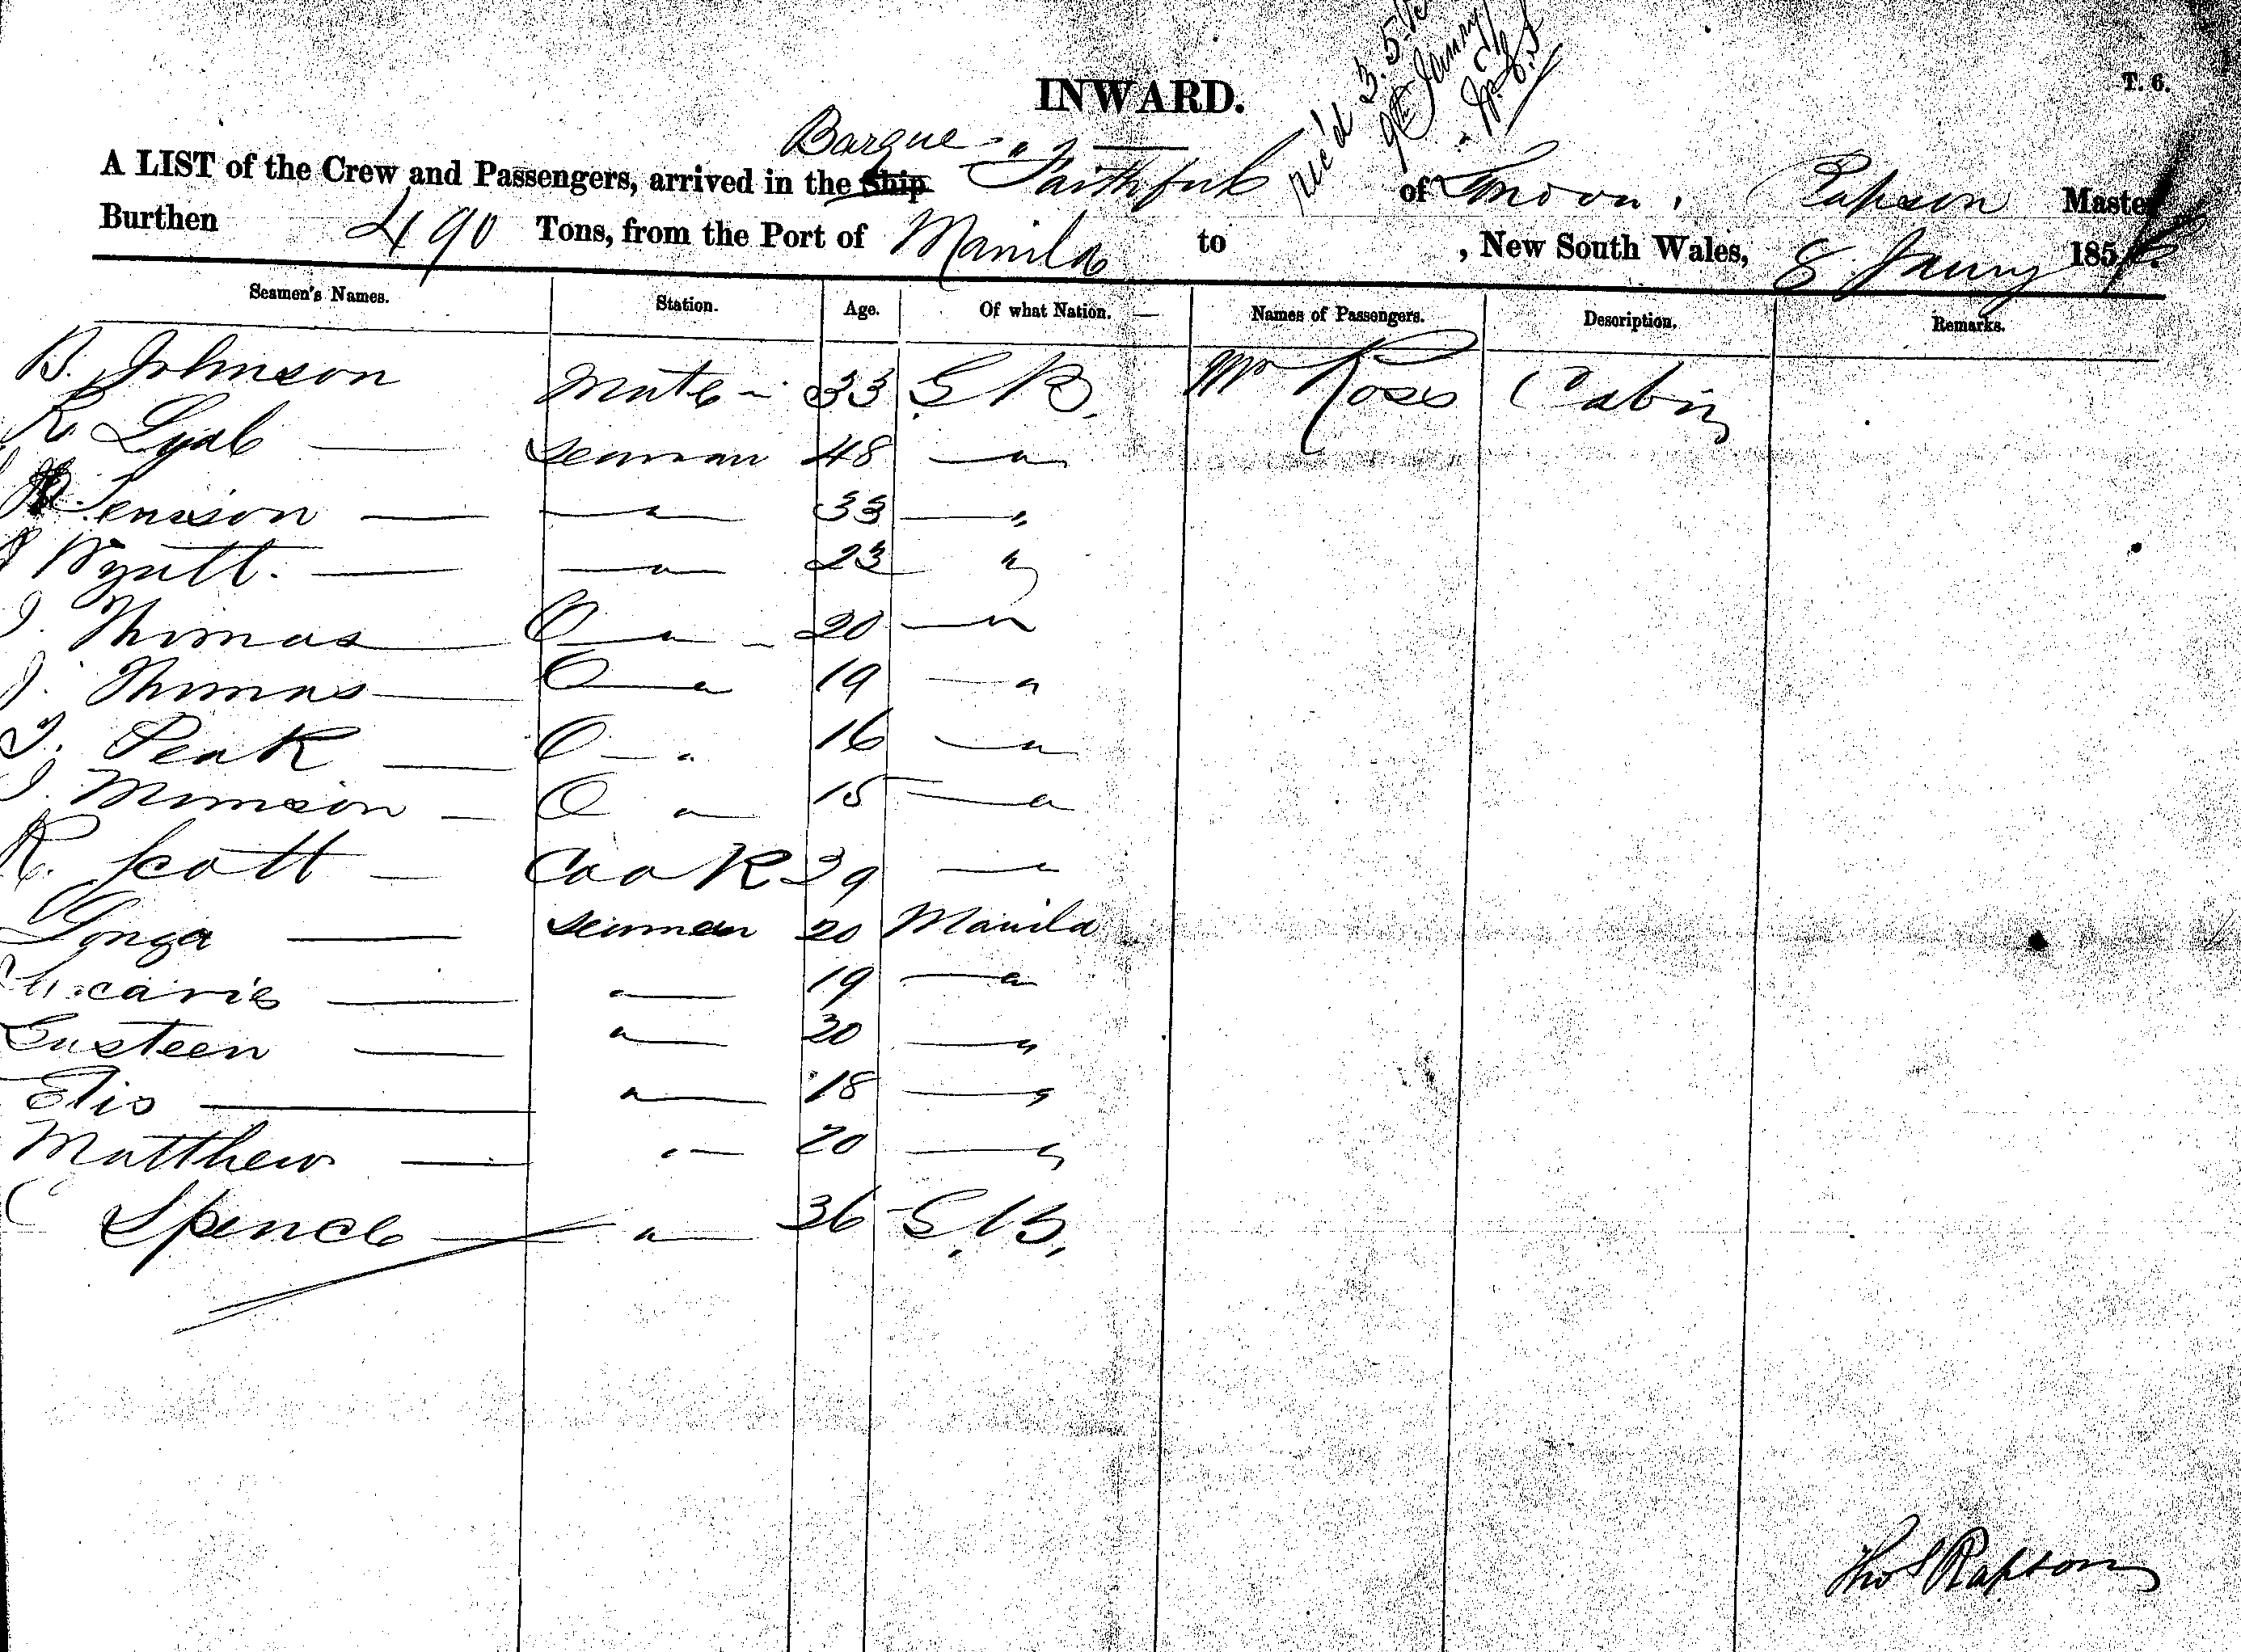 T. 6.
INWARD.
Rec'd 3.5
9th Janny
Barque "Faithful
A LIST of the Crew and Passengers, arrived in the Ship of London, Rapson Master
Burthen 490 Tons, from the Port of Manila to , New South Wales, 8 Janny 185
Seamen's Names. Station. Age. Of what Nation. Names of Passengers. Description. Remarks.
B. Johnson Mate 33 G B. Mr Ross Cabin
R. Lyal seaman 48 — "
Tenison — " 33 — "
Wyatt. — " 23 "
J. Thomas O — " 20 — "
J. Thomas O — " 19 — "
J. Peak O — " 16 — "
J. O " 15 — "
R. Scott Cook 39 — "
Longa seaman 20 Manila
" — 19 — "
Gusteen " — 30 — "
Elis " — 18 — "
Matthew " — 20 — "
C Spence " — 36 G.B.
Thos Rapson